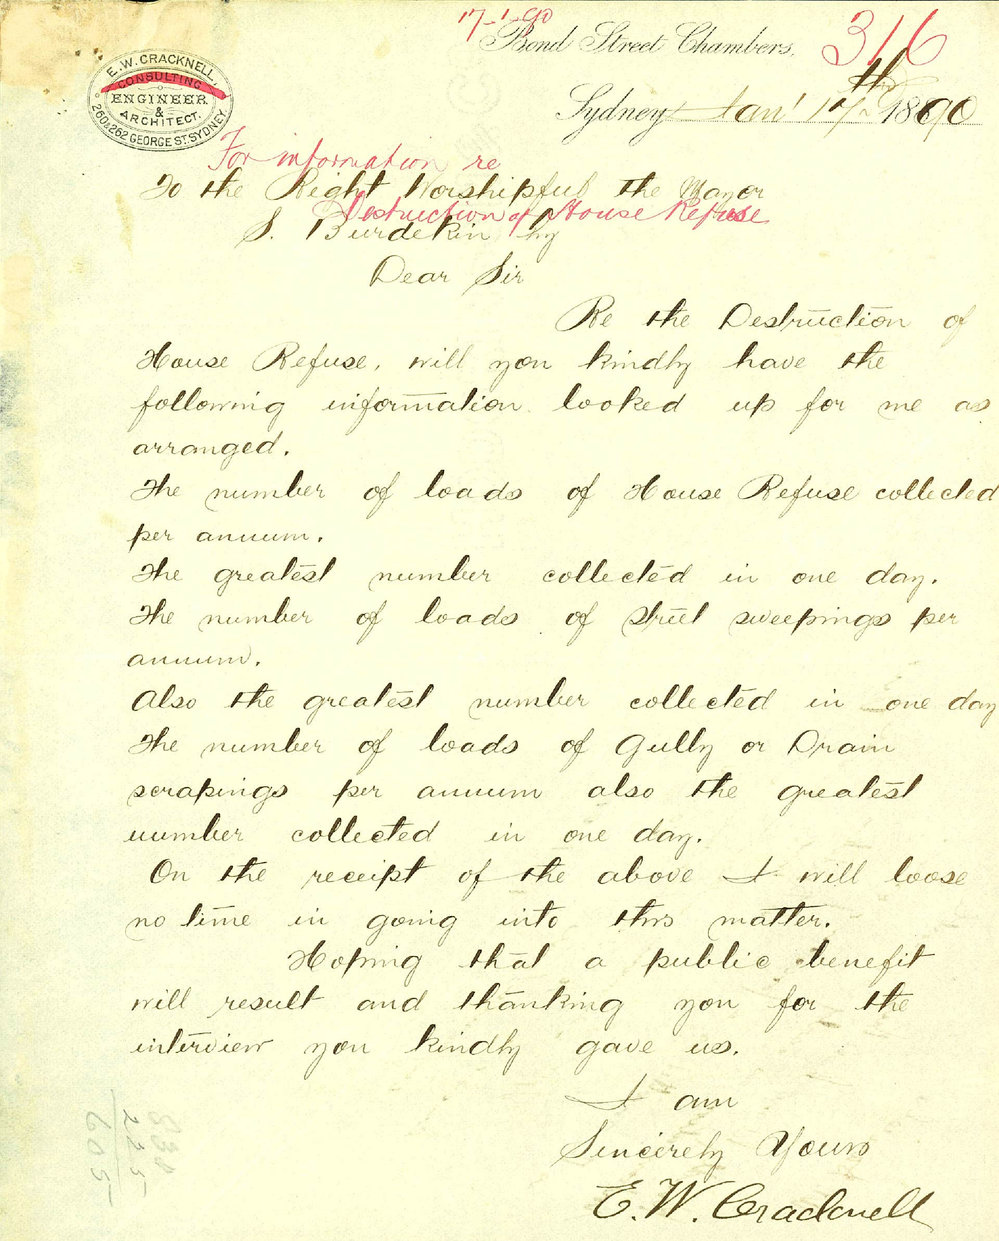 17-1-90
Bond Street Chambers,
316
E.W. CRACKNELL,
CONSULTING
ENGINEER
&
ARCHITECT.
260 & 262 GEORGE ST. SYDNEY
Sydney Jan' 17th 1890
For information re
To the Right Worshipful the Mayor
Destruction of House Refuse
S. Burdekin
Dear Sir
Re the Destruction of
House Refuse, will you kindly have the
following information looked up for me as
arranged.
The number of loads of House Refuse collected
per annum.
The greatest number collected in one day.
The number of loads of street sweepings per
annum.
Also the greatest number collected in one day
The number of loads of Gully or Drain
scrapings per annum also the greatest
number collected in one day.
On the receipt of the above I will loose
no time in going into this matter.
Hoping that a public benefit
will result and thanking you for the
interview you kindly gave us.
I am
Sincerely Yours
E. W. Cracknell